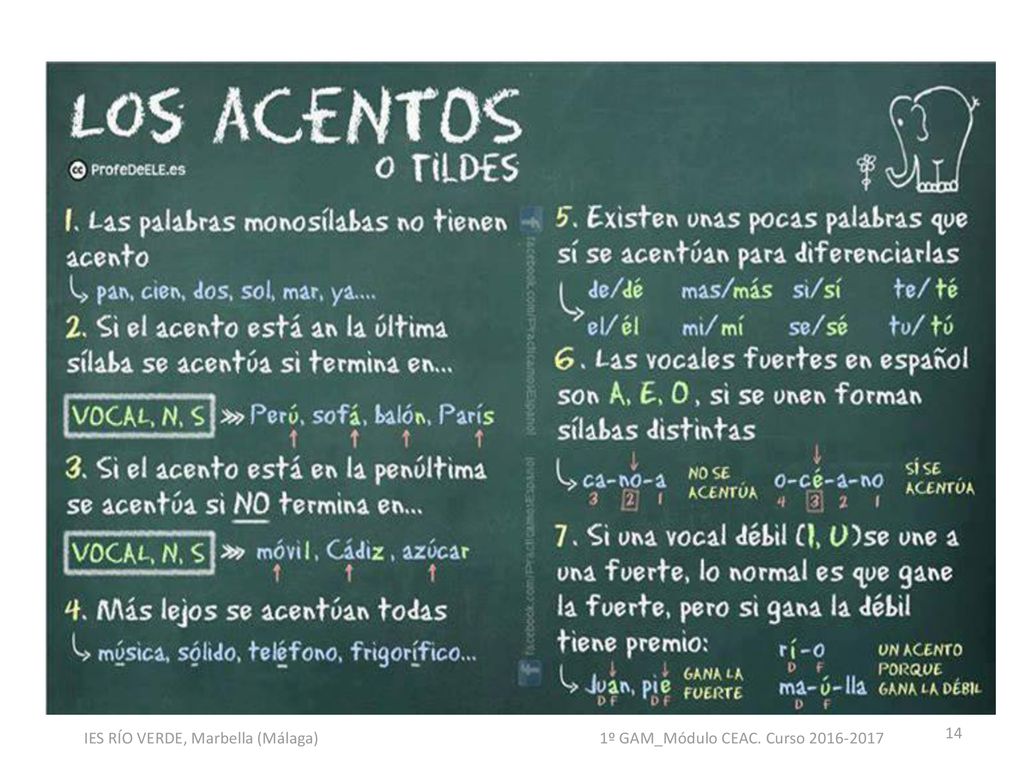 LOS ACENTOS
O TILDES
cc ProfeDeELE.es
1. Las palabras monosílabas no tienen
acento
pan, cien, dos, sol, mar, ya....
2. Si el acento está an la última
sílaba se acentúa si termina en...
VOCAL, N, S >>> Perú, sofá, balón, París
3. Si el acento está en la penúltima
se acentúa si NO termina en...
VOCAL, N, S >>> móvil, Cádiz, azúcar
4. Más lejos se acentúan todas
música, sólido, teléfono, frigorífico...
facebook.com/PracticamosEspanol
facebook.com/PracticamosEspanol
5. Existen unas pocas palabras que
sí se acentúan para diferenciarlas
de/dé mas/más si/sí te/té
el/él mi/mí se/sé tu/tú
6. Las vocales fuertes en español
son A, E, O, si se unen forman
sílabas distintas
ca-no-a NO SE ACENTÚA o-cé-a-no SÍ SE ACENTÚA
3 2 1 4 3 2 1
7. Si una vocal débil (I, U)se une a
una fuerte, lo normal es que gane
la fuerte, pero si gana la débil
tiene premio:
Juan, pie GANA LA FUERTE
D F D F
rí-o
D F
ma-ú-lla
D F
UN ACENTO
PORQUE
GANA LA DÉBIL
IES RÍO VERDE, Marbella (Málaga)
1º GAM_Módulo CEAC. Curso 2016-2017
14